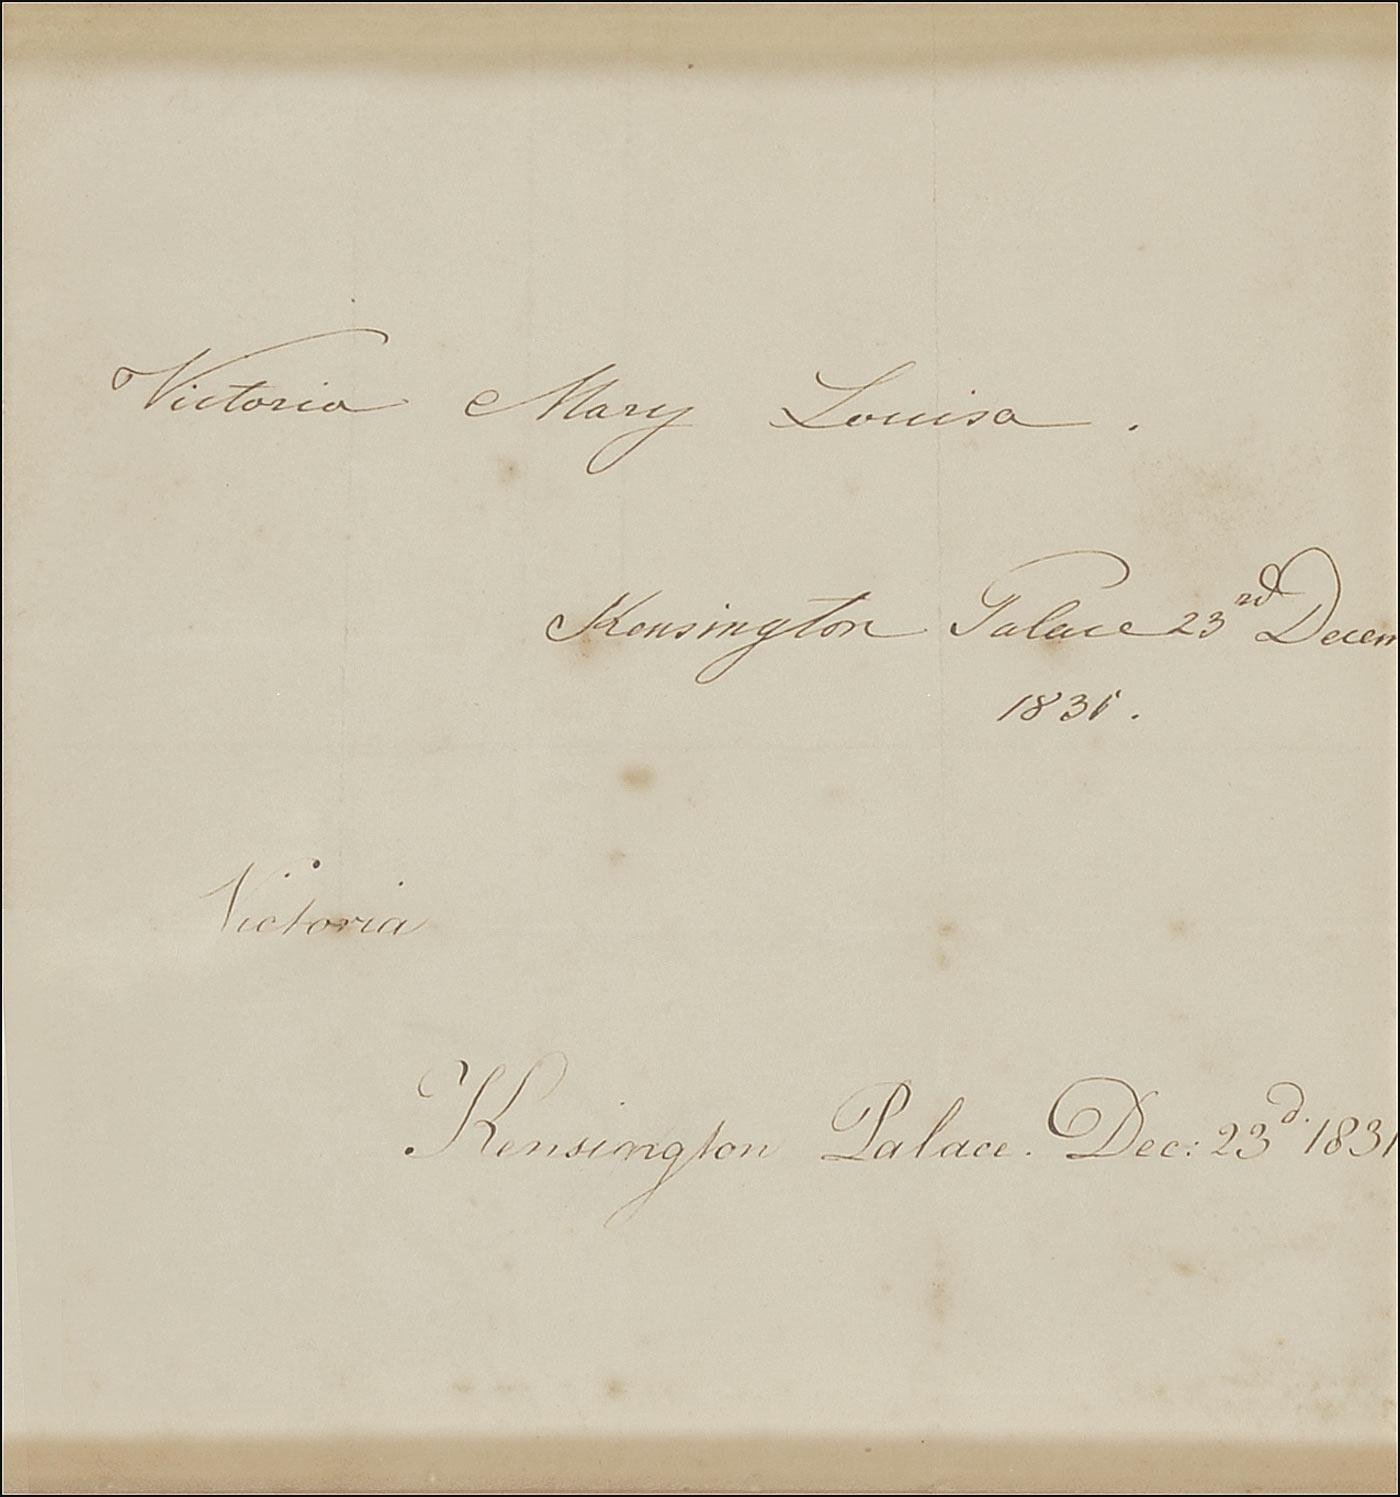 Victoria Mary Louisa.
Kensington Palace 23rd Decem
1831.
Victoria
Kensington Palace. Dec: 23d. 1831